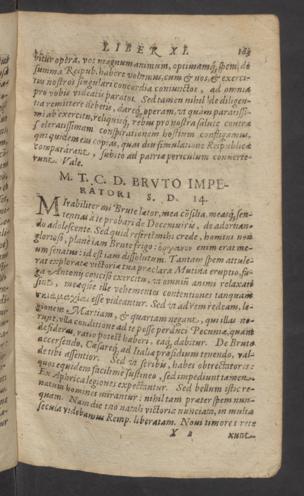 LIBER XI.
bitur operæ, vos magnum animum, optimamq́; spem, de
summa Reipub. habere volumus, cum & nos, & exerci-
tus nostros singulari concordia coniunctos, ad omnia
pro vobis videatis paratos. Sed tamen nihil de diligen-
tia remittere debetis, dareq́; operam, vt quàm paratissi-
mi ab exercitu, reliquisq́; rebus pro nostra salute contra
sceleratissimam conspirationem hostium confligamus,
qui quidem eas copias, quas diu simulatione Reipublicæ
comparárant, subitò ad patriæ periculum converte-
runt. Vale.
M. T. C. D. BRVTO IMPE-
RATORI S. D. 14.
MIrabiliter mi Brute lætor, mea cōsilia, measq́; sen-
tentias à te probari de Decemviris, de
do adolescente. Sed quid refert? mihi crede, homini non
glorioso, planè iam Brute frigeo: enim erat me-
um senatus: id est iam dissolutum. Tantam spem attule-
rat exploratæ victoriæ tua præclara Mutina eruptio, fu-
ga Antonij conciso exercitu, vt omnium animi relaxati
sint, meæque illæ vehementes contentiones tanquam
esse videantur. Sed vt ad rem redeam, le-
gionem Martiam, & quartam negant, qui illas no-
runt, vlla conditione ad te posse perduci. Pecuniæ, quam
desideras, ratio potest haberi, eaq́; dabitur. De Bruto
accersendo, Cæsareq́; ad Italiæ præsidium tenendo, val-
de tibi assentior. Sed vt scribis, habes obtrectatores:
quos equidem facillimè sustineo, sed impediunt tamen.
Ex Aphrica legiones expectantur. Sed bellum istic re-
natum homines mirantur: nihil tam præter spem nun-
quam. Nam die tuo natali victoria nunciata, in multa
secula videbamus Remp. liberatam. Novi timores rete
X 2
xunt